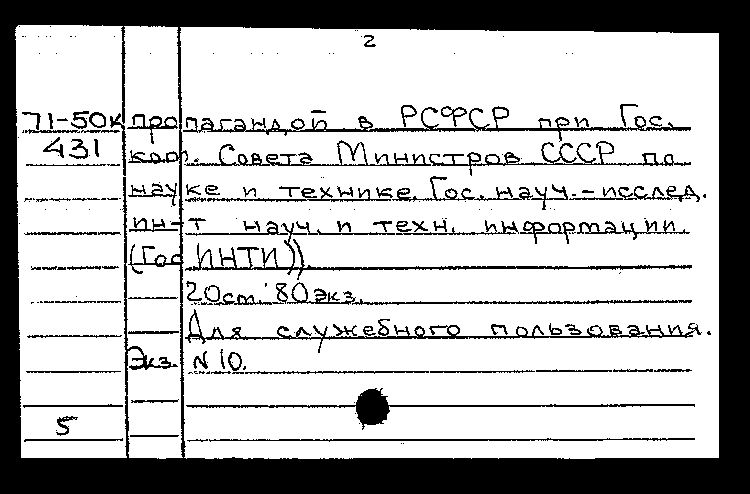 2
71-50к пропагандой в РСФСР при Гос.
431 кор. Совета Министров СССР по
науке и технике. Гос. науч.-исслед.
ин-т науч. и техн. информации.
(Гос ИНТИ)).
20см. 80экз.
Для служебного пользования.
Экз. N 10.
5